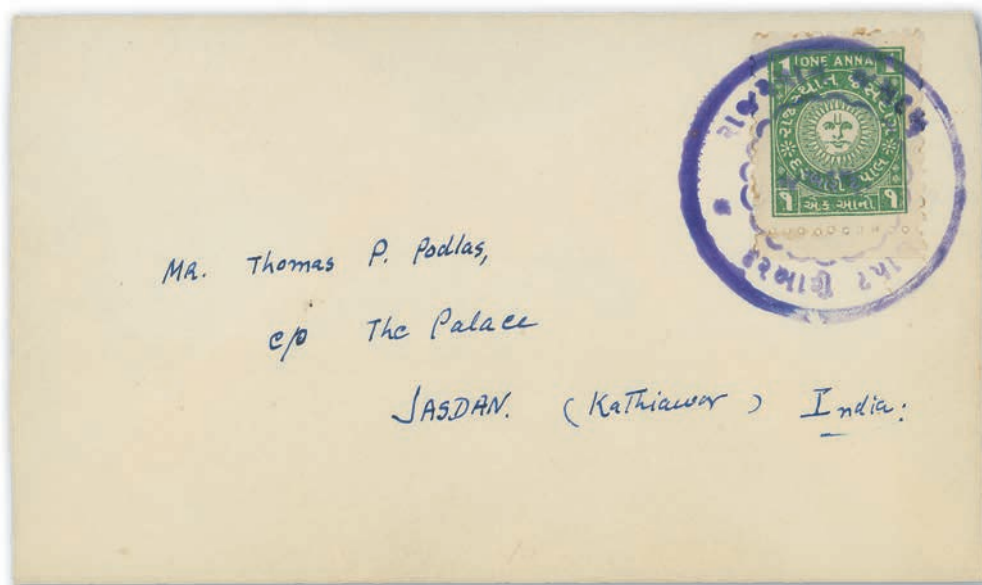 1 ONE ANNA 1
રાજસ્થાન જસદણ
૧ એક આનો ૧
Mr. Thomas P. Podlas,
c/o The Palace
JASDAN. (Kathiawar) India: